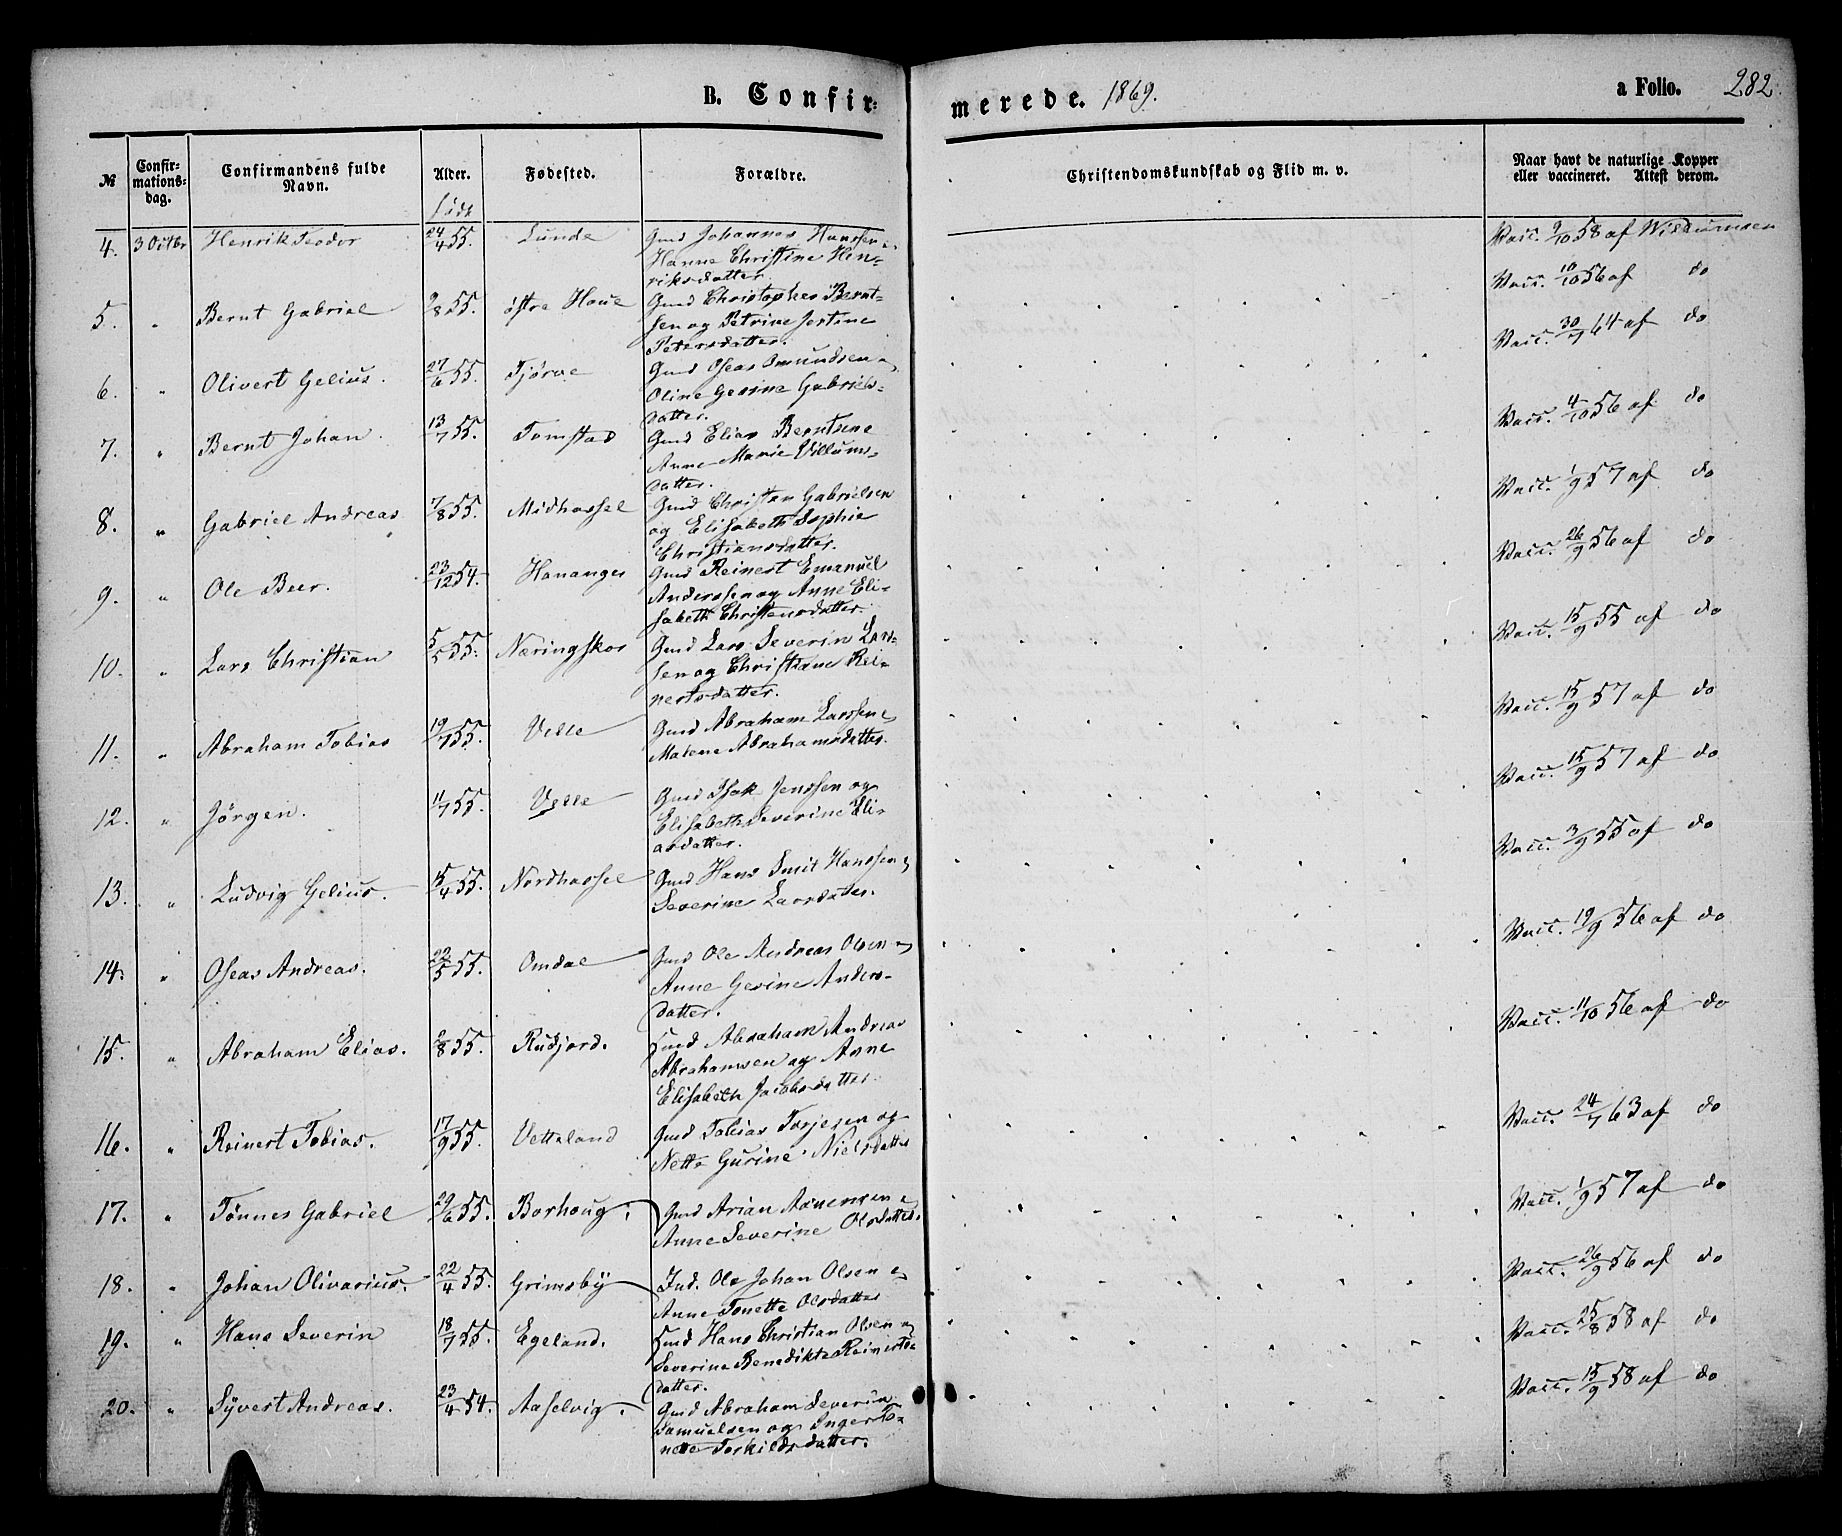 B. Confir-
merede. 1869.
a Folio. 282.
№
Confir-
mations-
dag.
Confirmandens fulde
Navn.
Alder.
Født
Fødested.
Forældre.
Christendomskundskab og Flid m. v.
Naar havt de naturlige Kopper
eller vaccineret. Attest derom.
4. 3 Octbr Henrik Teodor 24/4 55. Lunde Gmd Johannes Hanssen og
Hanne Christine Hen-
riksdatter.
Vacc. 9/10 58 af Willumsen
5. " Bernt Gabriel 2/8 55. østre Haue Gmd Christopher Bernt-
sen og Petrine Jertine
Petersdatter.
Vacc. 10/10 56 af do
6. " Olivert Gelius. 27/6 55. Tjørve Gmd Oseas Omundsen og
Oline Gesine Gabriels-
datter.
Vacc. 30/7 64 af do
7. " Bernt Johan. 13/7 55. Tomstad Gmd Elias Berntsen og
Anne Marie Villums-
datter.
Vacc. 4/10 56 af do
8. " Gabriel Andreas 7/8 55. Midhassel Gmd Christen Gabrielsen
og Elisabeth Sophie
Christiansdatter.
Vacc. 1/9 57 af do
9. " Ole Beer. 23/12 54. Hananger Gmd Reinert Emanuel
Anderssen og Anne Eli-
sabeth Christensdatter.
Vacc. 26/9 56 af do
10. " Lars Christian 5/5 55. Næringskor Gmd Lars Severin Lars-
sen og Christiane Rei-
nertsdatter.
Vacc. 15/9 55 af do
11. " Abraham Tobias 19/7 55. Velle Gmd Abraham Larssen og
Malene Abrahamsdatter.
Vacc. 15/9 57 af do
12. " Jørgen. 11/7 55. Velle Gmd Isak Jenssen og
Elisabeth Severine Eli-
asdatter.
Vacc. 15/9 57 af do
13. " Ludvig Gelius. 15/4 55. Nordhassel Gmd Hans Smit Hanssen og
Severine Larsdatter.
Vacc. 3/9 55 af do
14. " Oseas Andreas. 22/5 55. Omdal Gmd Ole Andreas Olsen og
Anne Gesine Anders-
datter.
Vacc. 19/9 56 af do
15. " Abraham Elias. 2/8 55. Rudjord. Gmd Abraham Andreas
Abrahamsen og Anne
Elisabeth Jacobsdatter.
Vacc. 11/10 56 af do
16. " Reinert Tobias. 17/9 55. Vetteland Gmd Tobias Torjesen og
Nette Gurine Nielsdatter
Vacc. 24/7 63 af do
17. " Tønnes Gabriel 29/6 55. Borhoug. Gmd Arian Aanensen og
Anne Severine Olsdatter.
Vacc. 1/9 57 af do
18. " Johan Olivarius. 22/4 55. Grimsby Ind. Ole Johan Olsen og
Anne Tonette Olsdatter
Vacc. 26/9 56 af do
19. " Hans Severin 18/7 55. Egeland. Hmd Hans Christian Olsen og
Severine Benedikte Reinerts-
datter.
Vacc. 25/8 58 af do
20. " Syvert Andreas. 23/4 54. Aaselvig. Gmd Abraham Severin
Samuelsen og Inger To-
nette Torkildsdatter.
Vacc. 15/9 58 af do